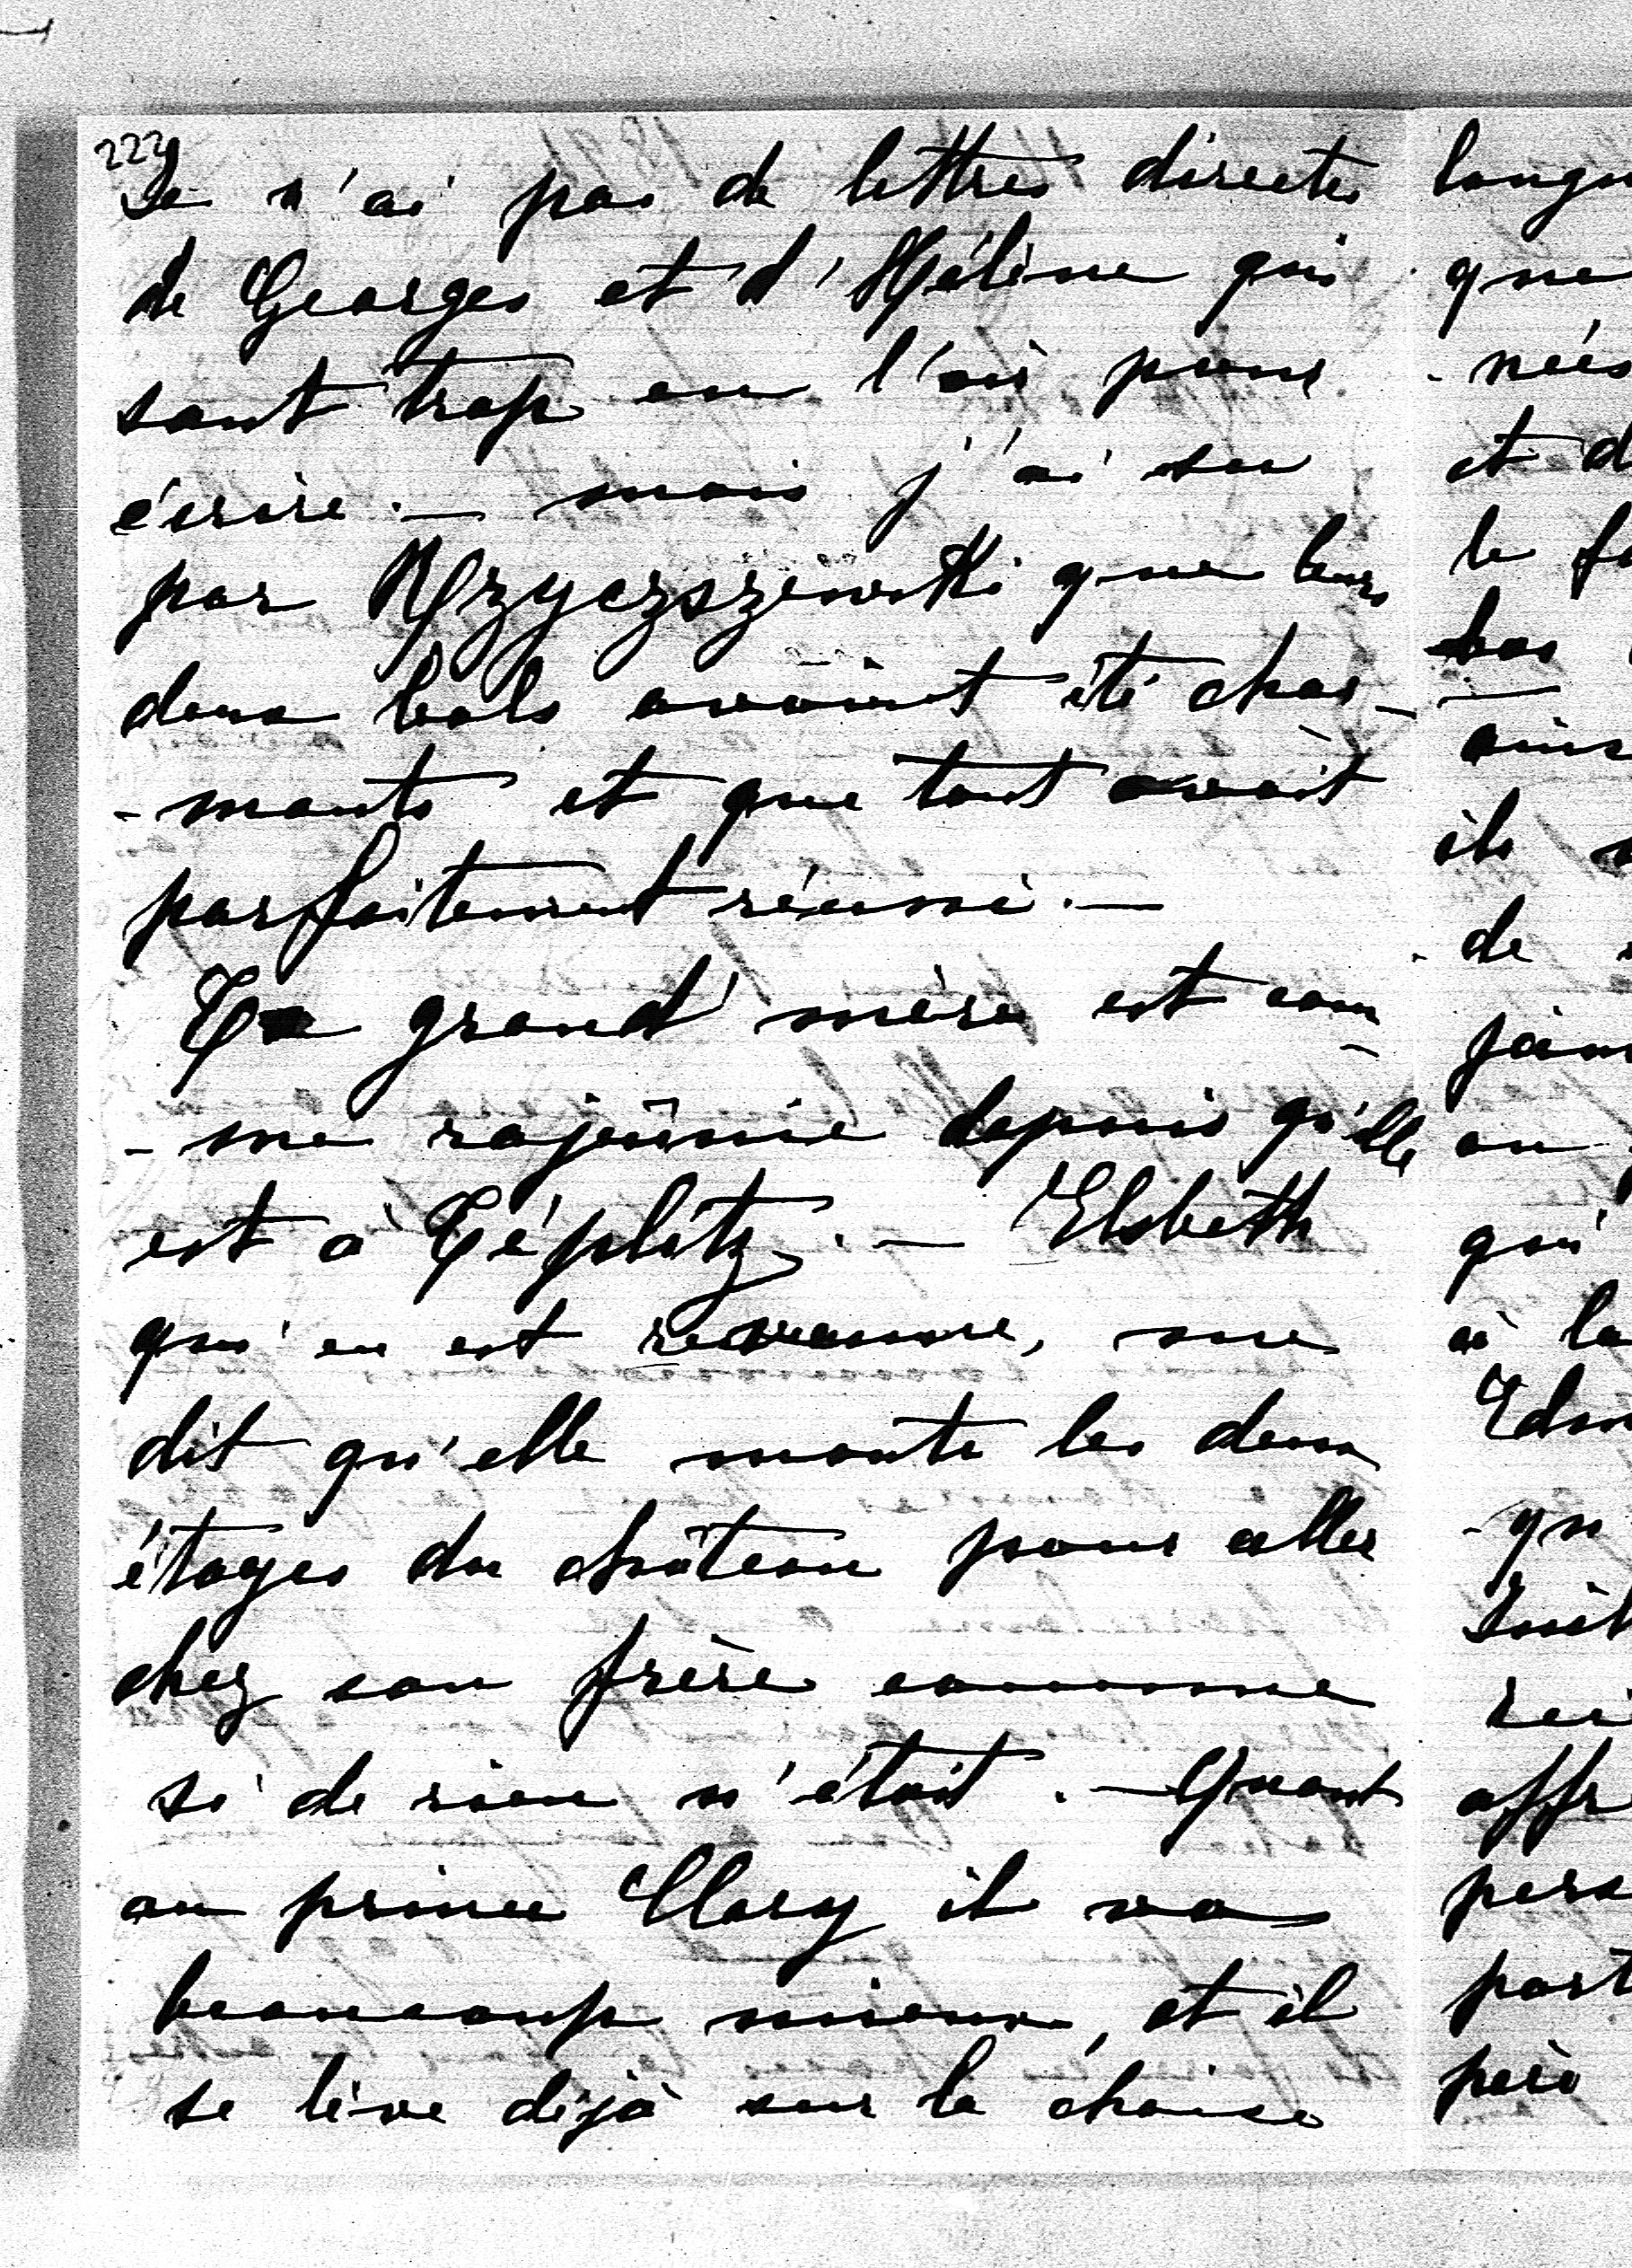 222
Je n'ai pas de lettres directes
de Georges et d'Hélène qui
sont trop en l'air pour
écrire. — mais j'ai su
par Krzyczszewski que leurs
deux bals avaient été char-
-mants et que tout avait
parfaitement réussi. —
Ta grand'mère est com-
-me rajeunie depuis qu'elle
est à Téplitz. — Elsbeth
qui en est revenue, me
dit qu'elle monte les deux
étages du château pour aller
chez son frère comme
si de rien n'était. — Quant
au prince Clary il va
beaucoup mieux, et il
se lève déjà sur la chaise
que
-nées
et d
le fa
bas
ils
de
en
qui
à la